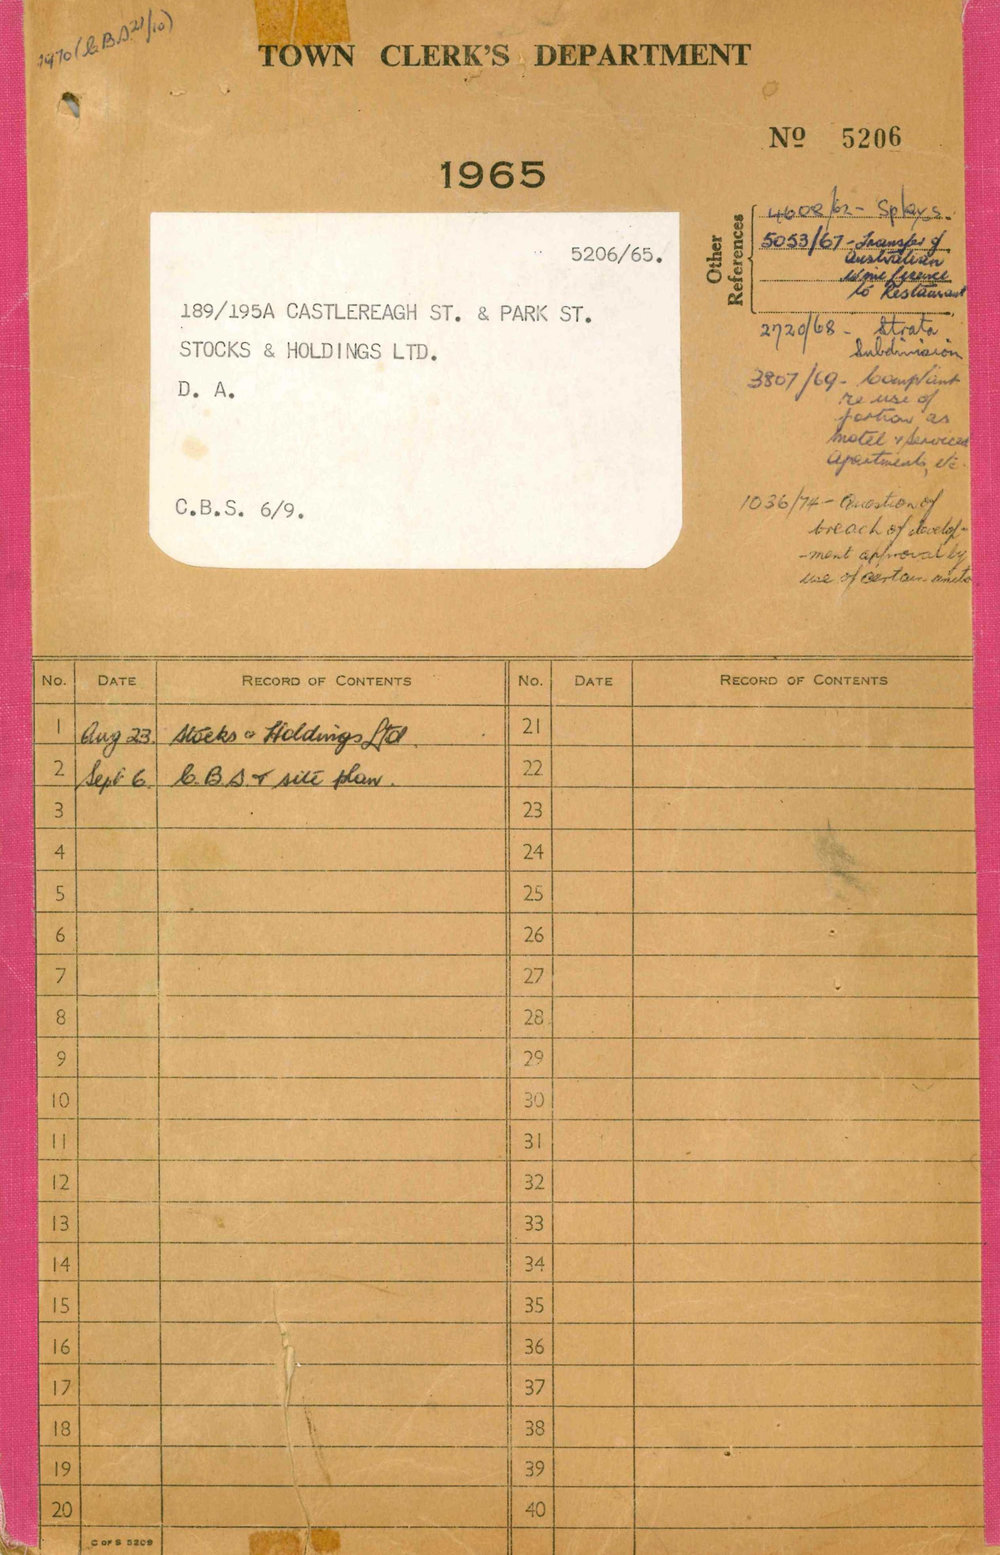 1970 (C.B.S. 21/10)
TOWN CLERK'S DEPARTMENT
Nº 5206
1965
5206/65.
189/195A CASTLEREAGH ST. & PARK ST.
STOCKS & HOLDINGS LTD.
D. A.
C.B.S. 6/9.
Other
References
4608/62 - Splays.
5053/67 - Transfer of
Australian
Wine licence
to Restaurant
2720/68 - Strata
Subdivision
3807/69 - Complaint
re use of
portion as
motel & serviced
apartments, etc.
1036/74 - Question of
breach of develop-
-ment approval by
use of certain units
No. DATE RECORD OF CONTENTS No. DATE RECORD OF CONTENTS
1 Aug 23. Stocks & Holdings Ltd. 21
2 Sept 6 C.B.S. & site plan. 22
3 23
4 24
5 25
6 26
7 27
8 28
9 29
10 30
11 31
12 32
13 33
14 34
15 35
16 36
17 37
18 38
19 39
20 40
C OF S 5209